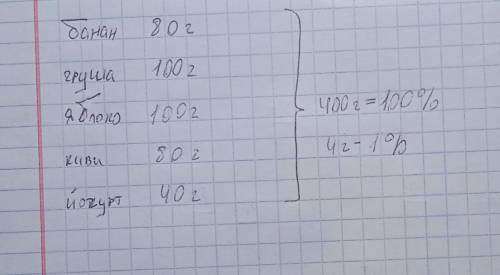 банан 80 г
груша 100 г
яблоко 100 г
400 г = 100%
киви 80 г
4 г - 1%
йогурт 40 г